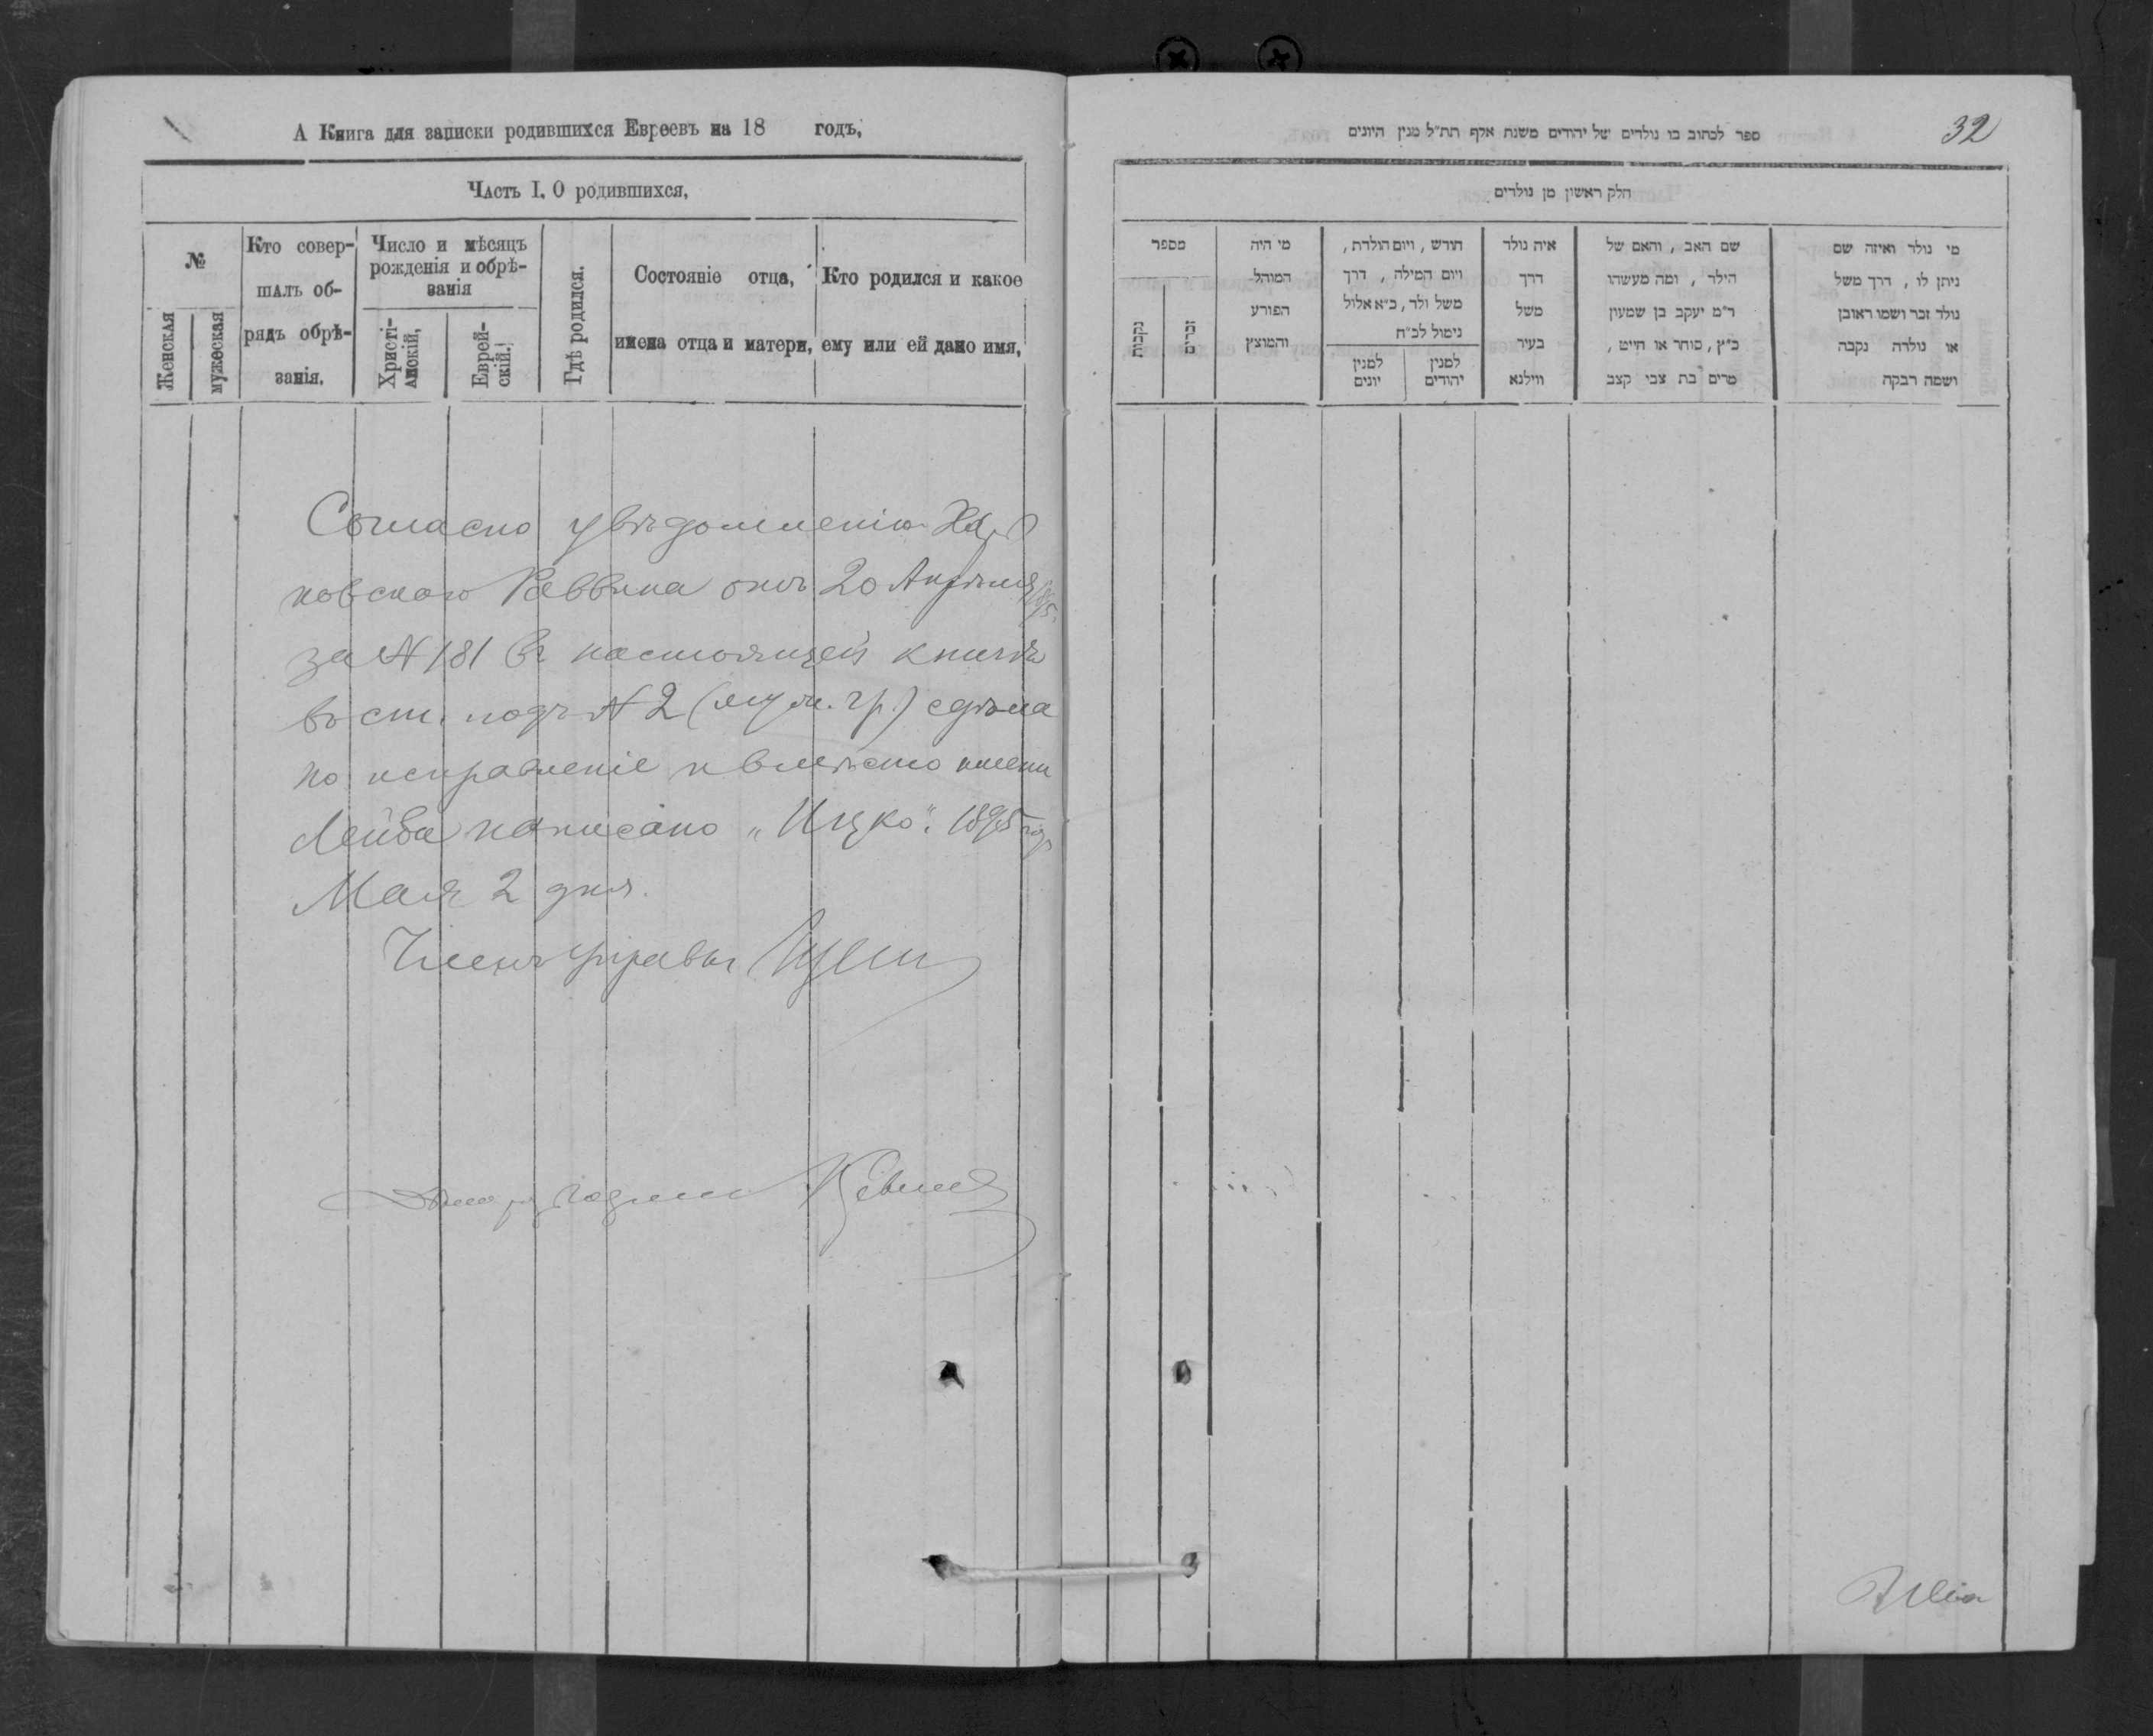 А Книга для записки родившихся Евреевъ на 18 годъ,
Часть I. О родившихся,
№
Женская
мужеская
Кто совер-
шалъ об-
рядъ обрѣ-
занія.
Число и мѣсяцъ
рожденія и обрѣ-
занія
Христі-
анскій,
Еврей-
скій.
Гдѣ родился.
Состояніе отца,
имена отца и матери,
Кто родился и какое
ему или ей дано имя,
Согласно увѣдомленію
ковскаго Раввина отъ 20 Апрѣля 1895
за № 181 въ настоящей книгѣ
въ ст. подъ № 2 (муж. гр.) сдѣла
но исправленіе и вмѣсто имени
Лейба написано „Ицко“. 1895 года
Мая 2 дня.
Членъ Управы
32
ספר לכתוב בו נולדים של יהודים משנת אלף תת״ל מנין היונים
חלק ראשון מן נולדים
מספר
נקבות
זכרים
מי היה
המוהל
הפורע
והמוצץ
חודש, ויום הולדת,
ויום המילה, דרך
משל ולד, כ״א אלול
נימול לכ״ח
למנין
יונים
למנין
יהודים
איה נולד
דרך
משל
בעיר
ווילנא
שם האב, והאם של
הילד, ומה מעשהו
ר״מ יעקב בן שמעון
כ״ץ, סוחר או חייט,
מרים בת צבי קצב
מי נולד ואיזה שם
ניתן לו, דרך משל
נולד זכר ושמו ראובן
או נולדה נקבה
ושמה רבקה